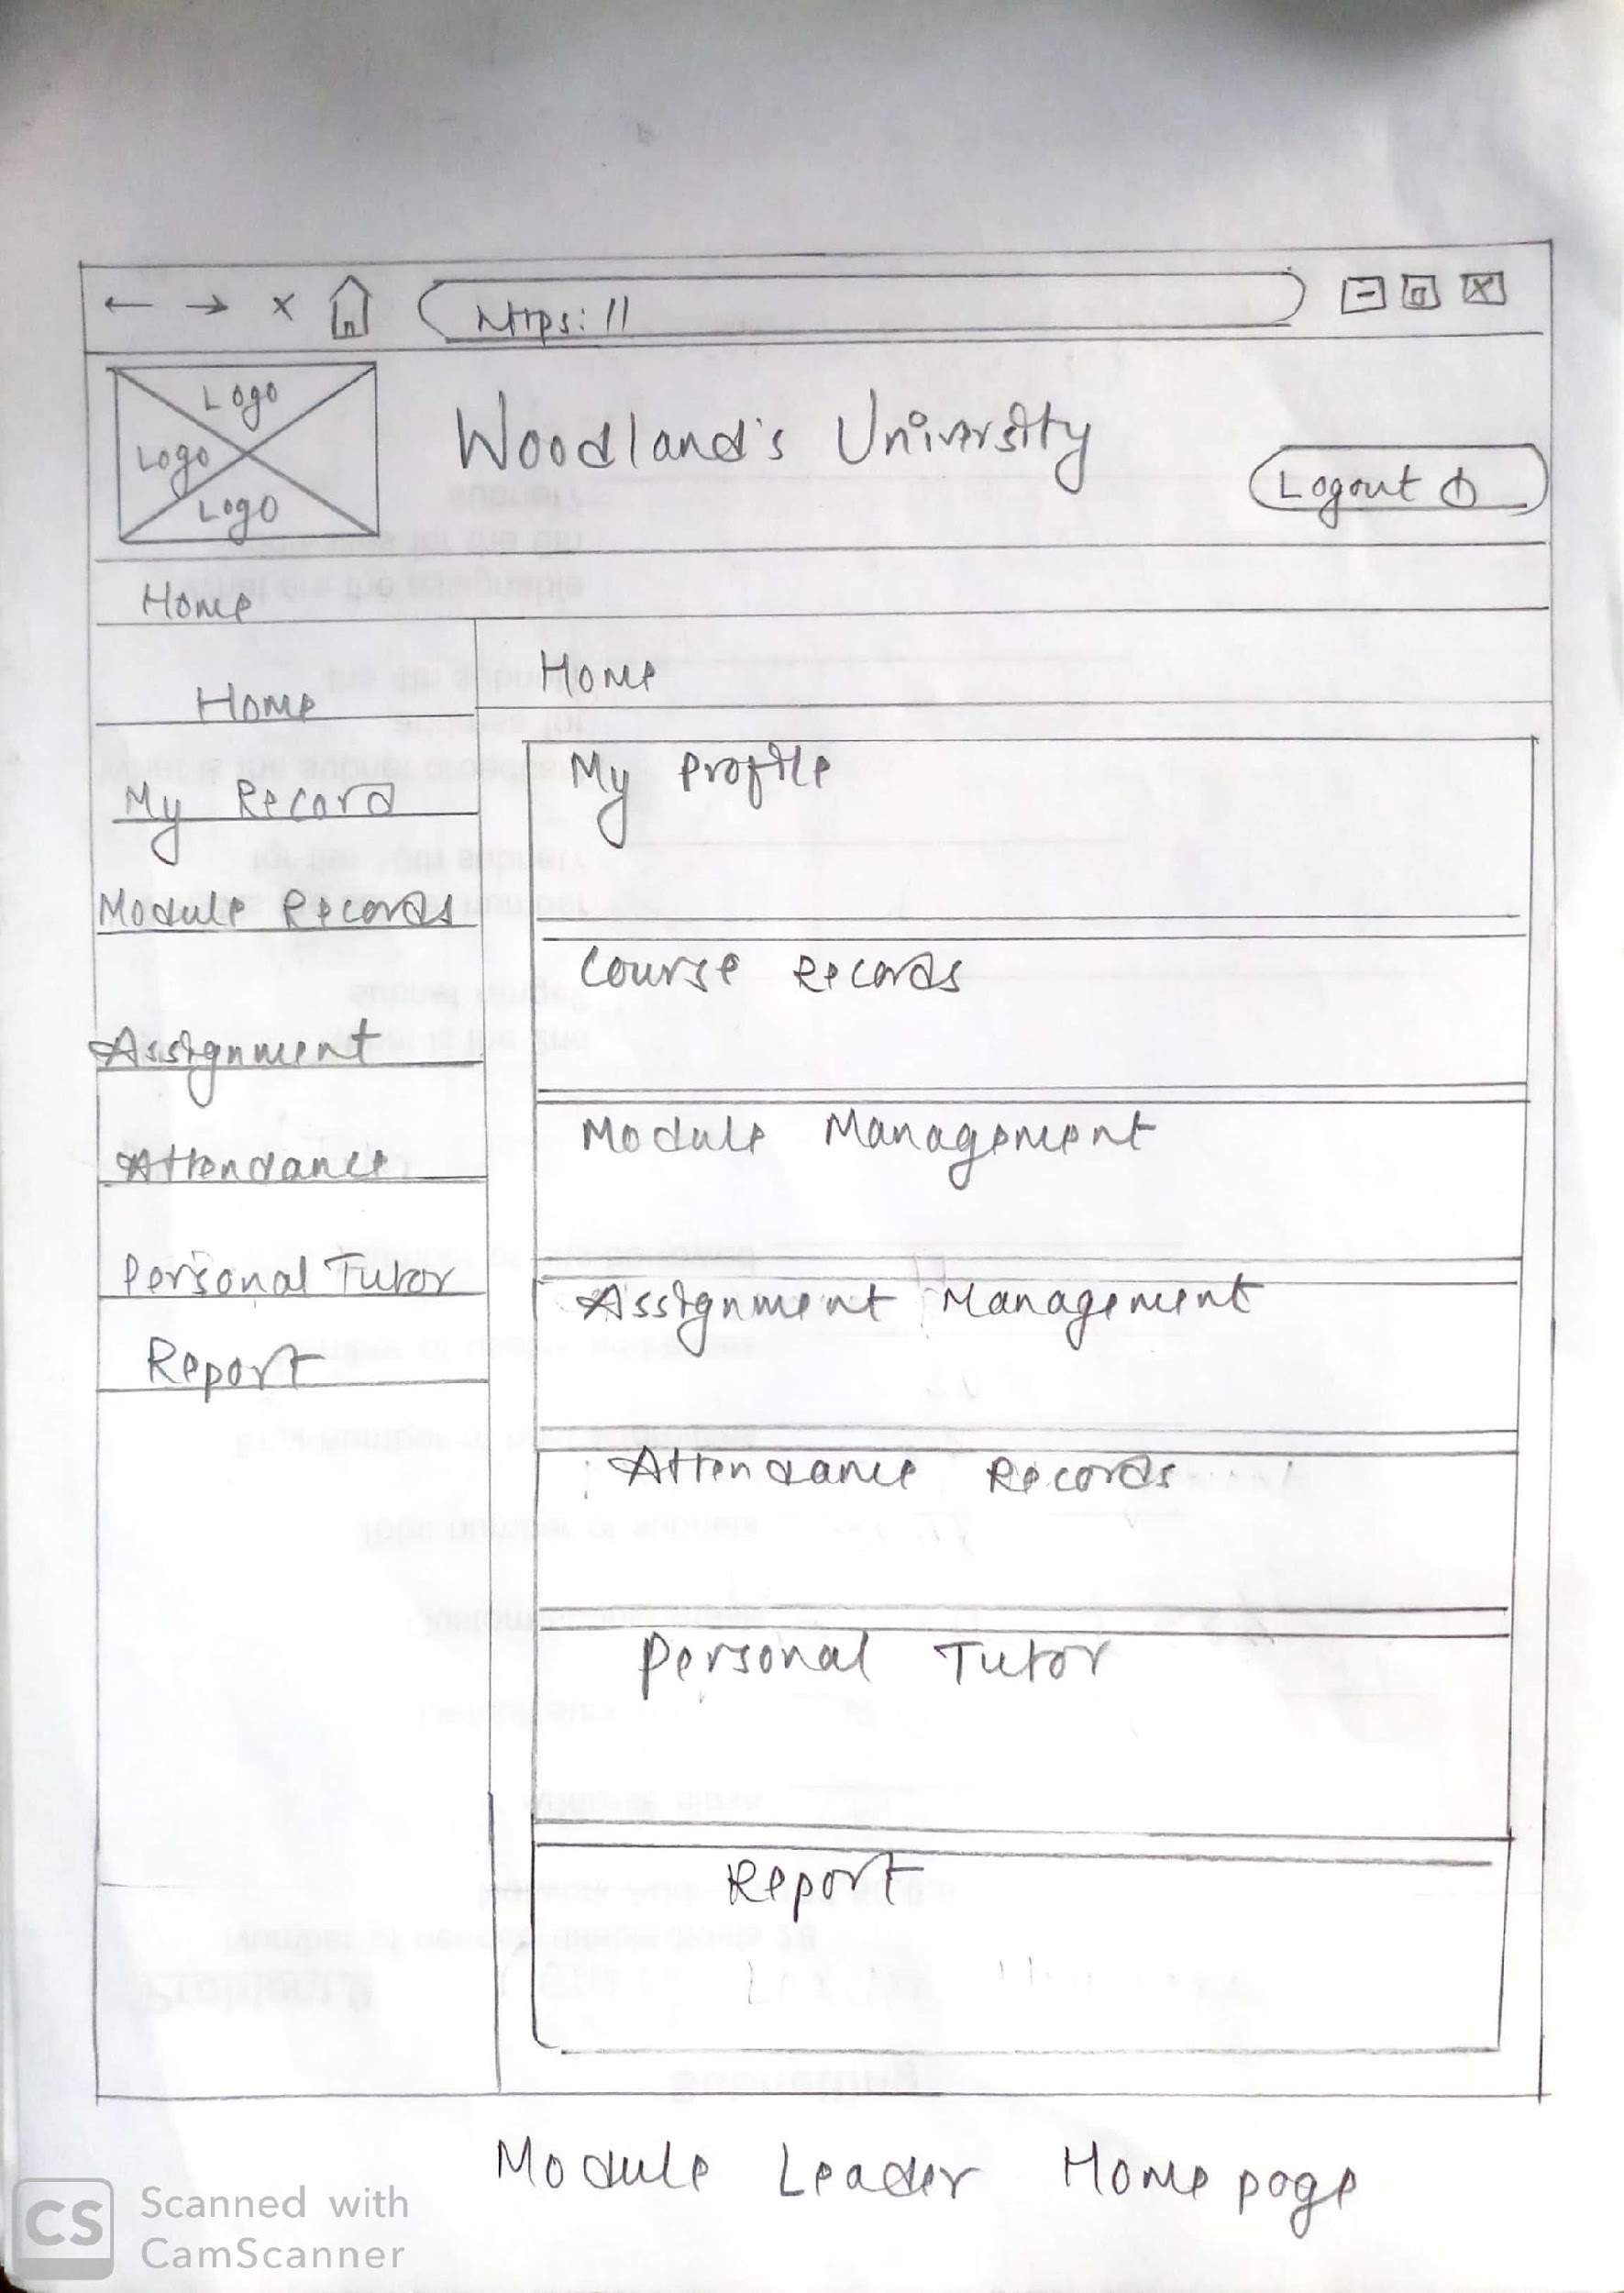 https://
Logo
Logo
Logo
Woodland's University
Logout
Home
Home
My Record
Module Records
Assignment
Attendance
Personal Tutor
Report
Home
My Profile
Course Records
Module Management
Assignment Management
Attendance Records
Personal Tutor
Report
Module Leader Home page
CS
Scanned with
CamScanner